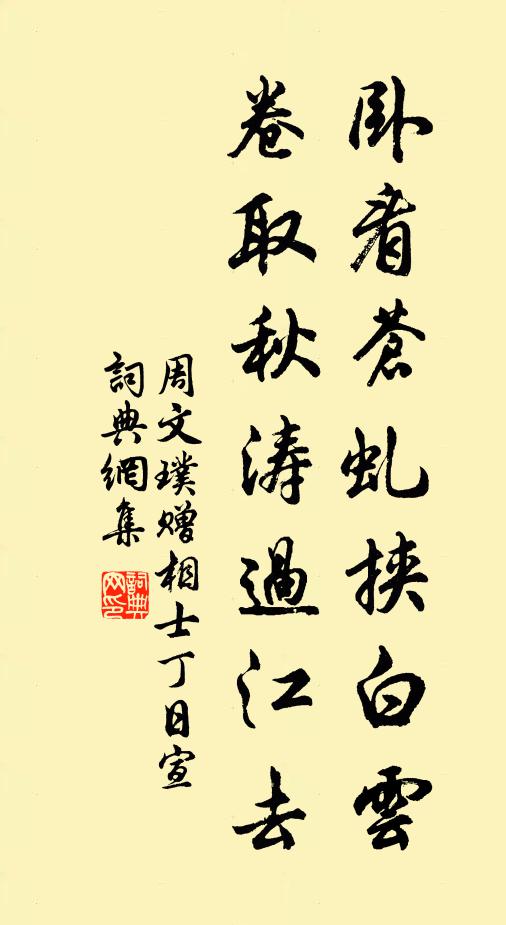 卧看蒼虬挾白雲
卷取秋涛過江去
周文璞赠相士丁日宣
詞典網集
詞典網印